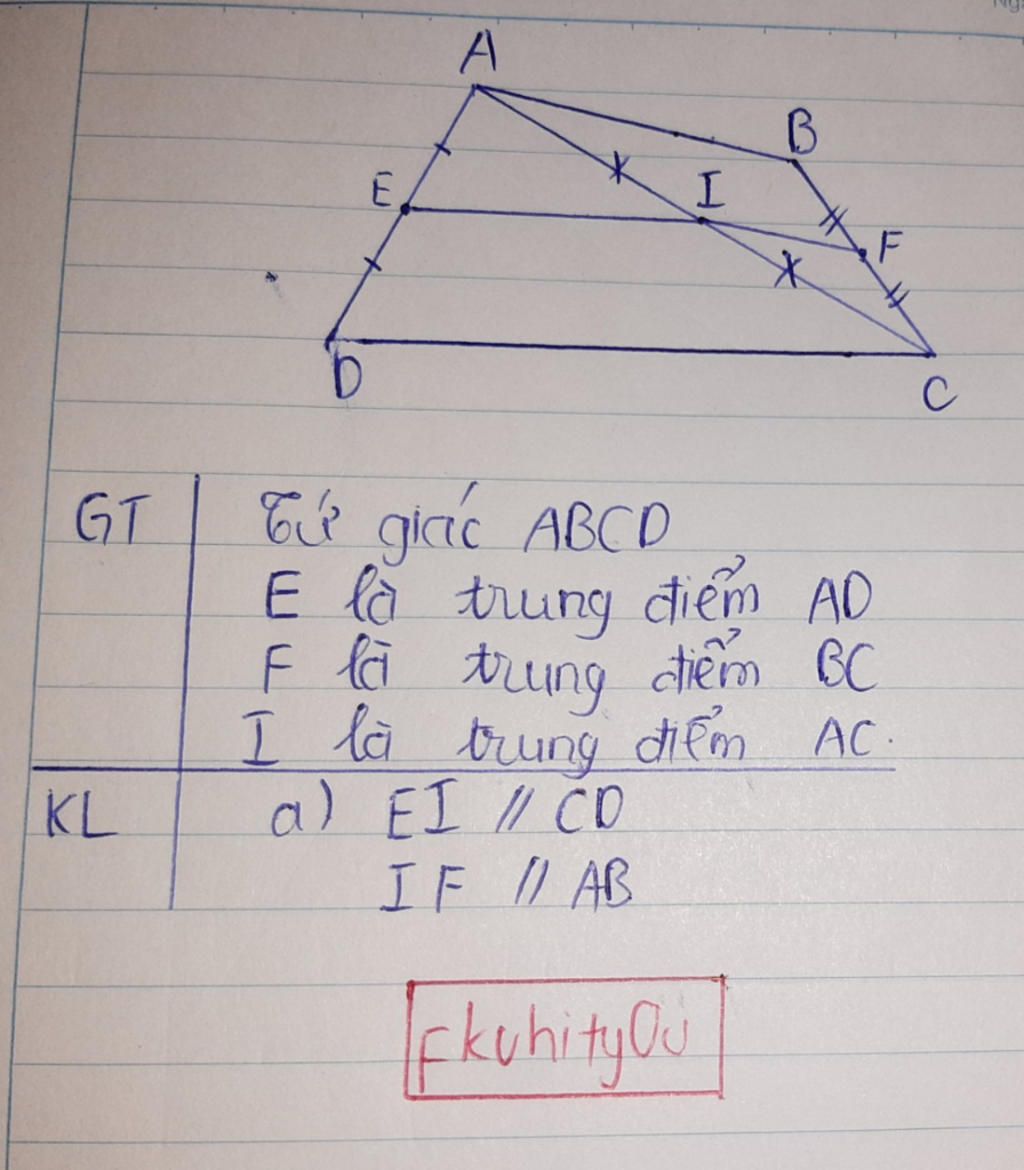 A
B
E
I
F
D
C
GT
Tứ giác ABCD
E là trung điểm AD
F là trung điểm BC
I là trung điểm AC.
KL
a) EI // CD
IF // AB
Fkuhity0u